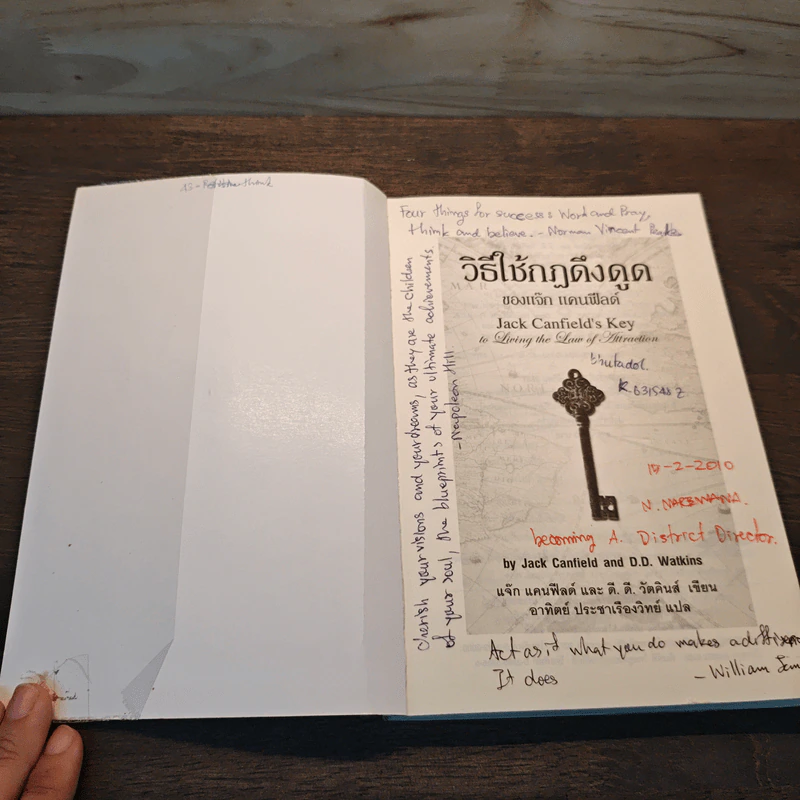 Four things for success Word and Pray,
think and believe. - Norman Vincent
cherish your visions and your dreams, as they are the children
of your soul, the blueprints of your ultimate achievements
- Napoleon Hill
วิธีใช้กฎดึงดูด
ของแจ๊ก แคนฟีลด์
Jack Canfield's Key
to Living the Law of Attraction
2-2010
becoming A. District Director.
by Jack Canfield and D.D. Watkins
แจ๊ก แคนฟีลด์ และ ดี. ดี. วัตคินส์ เขียน
อาทิตย์ ประชาเรืองวิทย์ แปล
Act as if what you do makes a
It does
- William